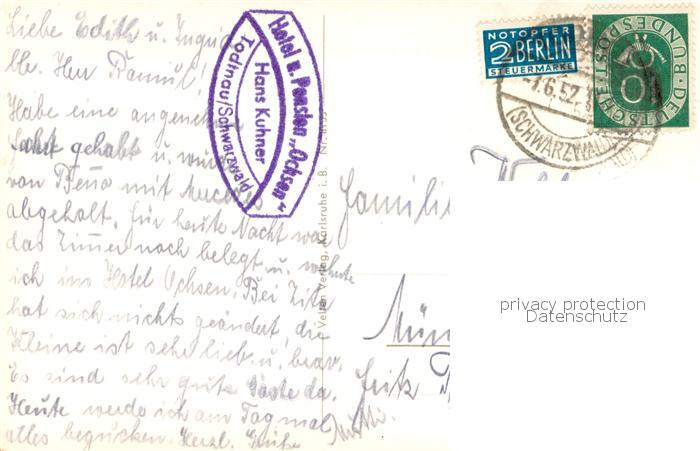 Liebe Edith u. Ingrid
Habe eine angenehme
Fahrt gehabt u. wurde
von Beno mit
abgeholt. Für heute Nacht war
das Zimmer noch belegt u. wohnte
ich im Hotel Ochsen. Bei
hat sich nichts geändert, die
Kleine ist sehr lieb u. brav.
Es sind sehr gute Gäste da.
Heute werde ich am Tag mal
alles begucken. Herzl. Grüße
Hotel u. Pension „Ochsen“
Hans Kuhner
Todtnau/Schwarzwald
Verlag, Karlsruhe i. B.
NOTOPFER
2 BERLIN
STEUERMARKE
DEUTSCHE BUNDESPOST
10
-1.6.52
(SCHWARZWALD)
Familie
Mün
Fritz
privacy protection
Datenschutz